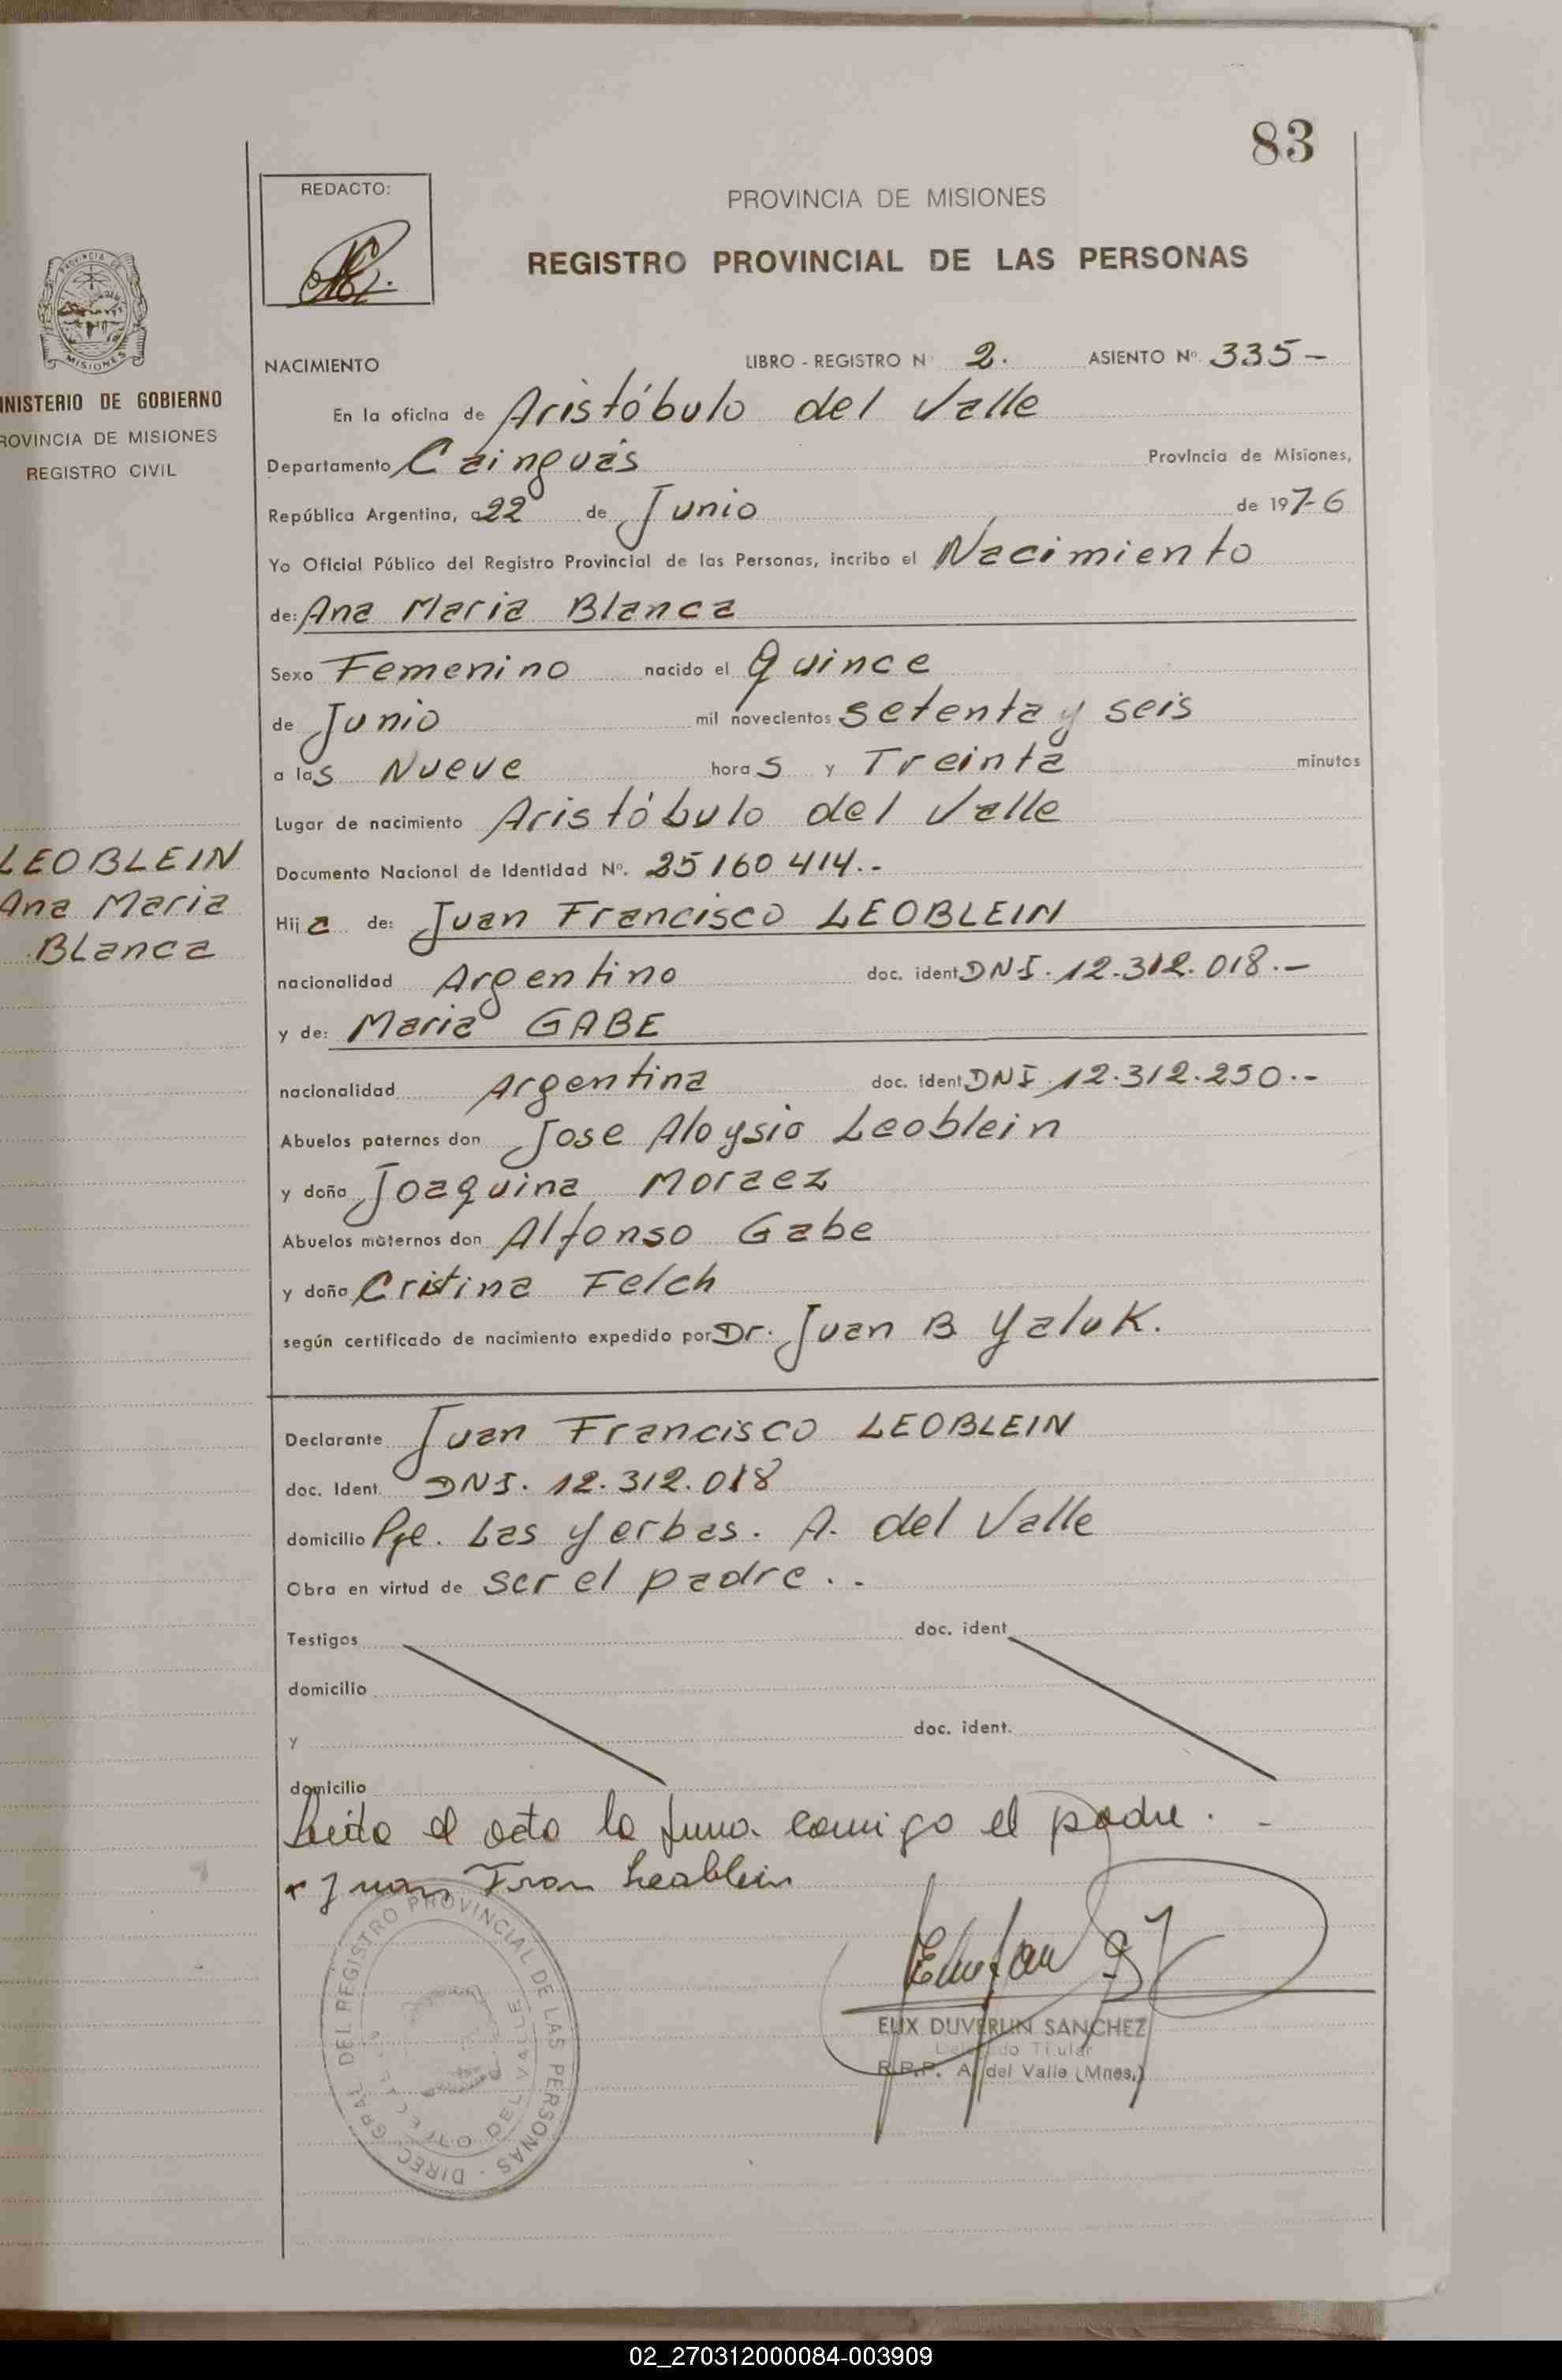 83
REDACTO:
PROVINCIA DE MISIONES
REGISTRO PROVINCIAL DE LAS PERSONAS
PROVINCIA DE
MISIONES
INISTERIO DE GOBIERNO
ROVINCIA DE MISIONES
REGISTRO CIVIL
LEOBLEIN
Ana Maria
Blanca
NACIMIENTO LIBRO - REGISTRO Nº 2. ASIENTO Nº 335-
En la oficina de Aristóbulo del Valle
Departamento Cainguás Provincia de Misiones,
República Argentina, a 22 de Junio de 1976
Yo Oficial Público del Registro Provincial de las Personas, incribo el Nacimiento
de: Ana Maria Blanca
Sexo Femenino nacido el Quince
de Junio mil novecientos setenta y seis
a las Nueve horas y Treinta minutos
Lugar de nacimiento Aristóbulo del Valle
Documento Nacional de Identidad Nº. 25160414.-
Hija de: Juan Francisco LEOBLEIN
nacionalidad Argentino doc. ident DNI. 12.312.018.-
y de: Maria GABE
nacionalidad Argentina doc. ident DNI. 12.312.250.-
Abuelos paternos don Jose Aloysio Leoblein
y doña Joaquina Moraez
Abuelos maternos don Alfonso Gabe
y doña Cristina Felch
según certificado de nacimiento expedido por Dr. Juan B. Yaluk.
Declarante Juan Francisco LEOBLEIN
doc. Ident. DNI. 12.312.018
domicilio Pje. Las Yerbas. A. del Valle
Obra en virtud de ser el padre..
Testigos doc. ident
domicilio
y doc. ident.
domicilio
Leida el acta la firma comigo el padre.-
Juan Fran Leablein
DIREC. GRAL DEL REGISTRO PROVINCIAL DE LAS PERSONAS
DEL VALLE
ELIX DUVERLIN SANCHEZ
Delegado Titular
R.P.P. A. del Valle (Mnes.)
02_270312000084-003909